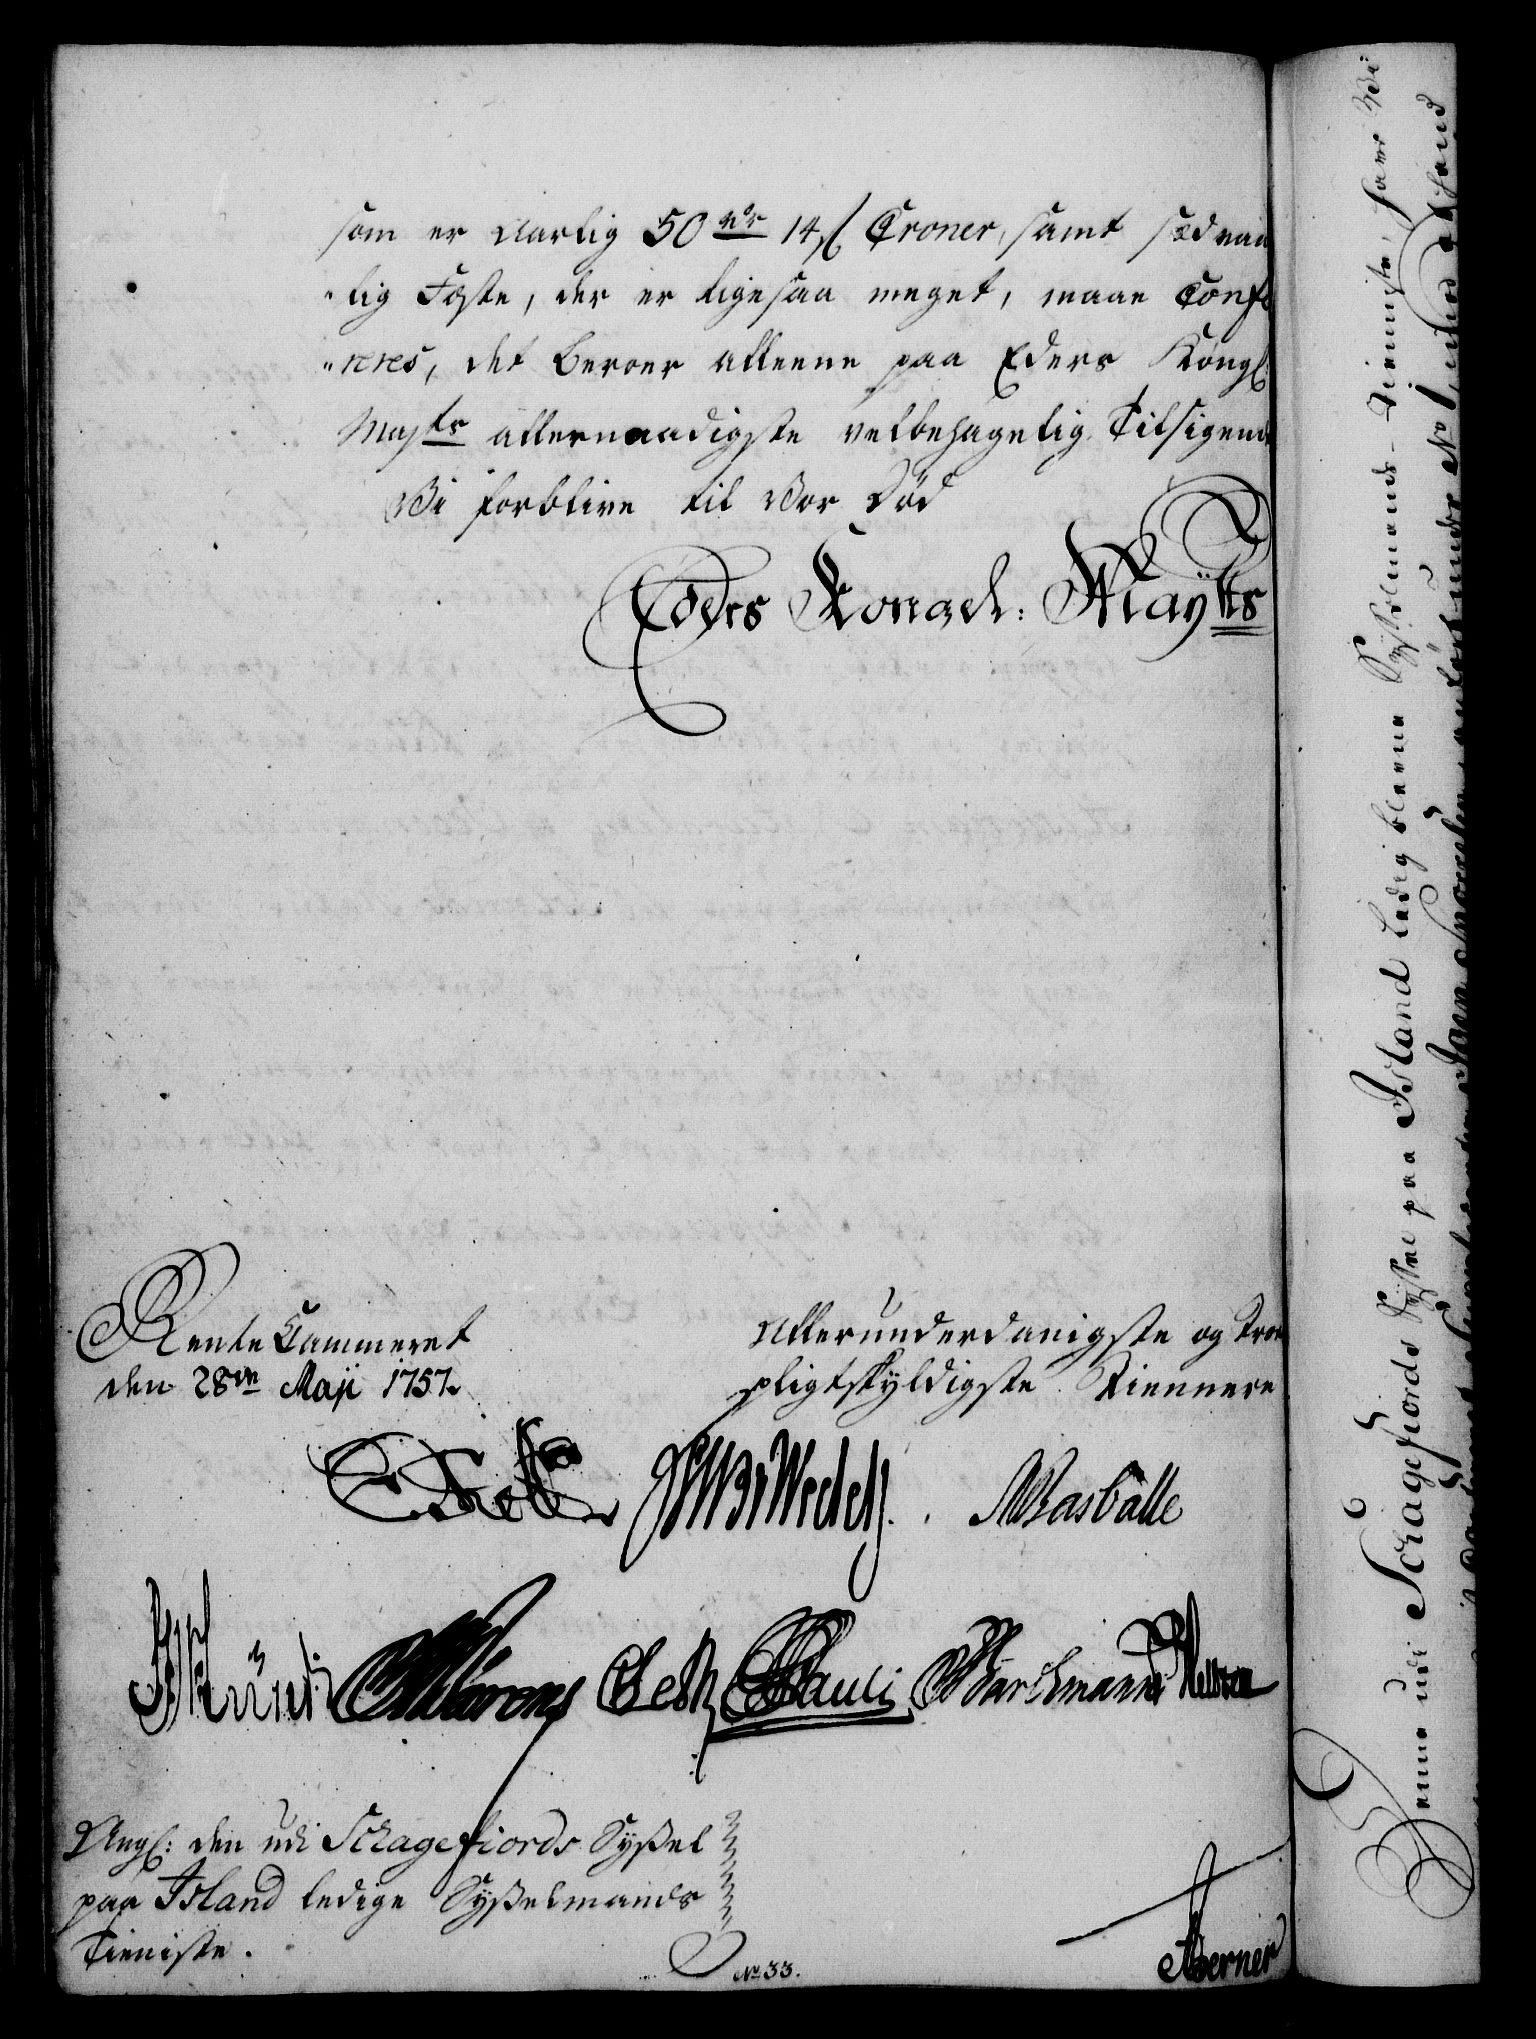 som er Aarlig 50 rdr 14 ß Croner, samt sædvan
-lig Fæste, der er ligesaa meget, maae Confe
"reres, det beroer alleene paa Eders Kongl:
Mayts allernaadigste velbehagelig Tilsigende
Vi forblive til Vor Död
Eders Kongel: Mayts
Rente Cammeret
den 28de Maji 1757.
Allerunderdanigste og troe
pligtskyldigste Tiennere
Wedel Rasballe
Pauli Barchmann
Angl: den udi Schagefiords Syßel
paa Island ledige Syßelmands
Tieniste.
No 33.
Berner
Denne udi Schagefiords Syssel paa Island ledig blevne Sysselmands-Tienneste, haver Vi